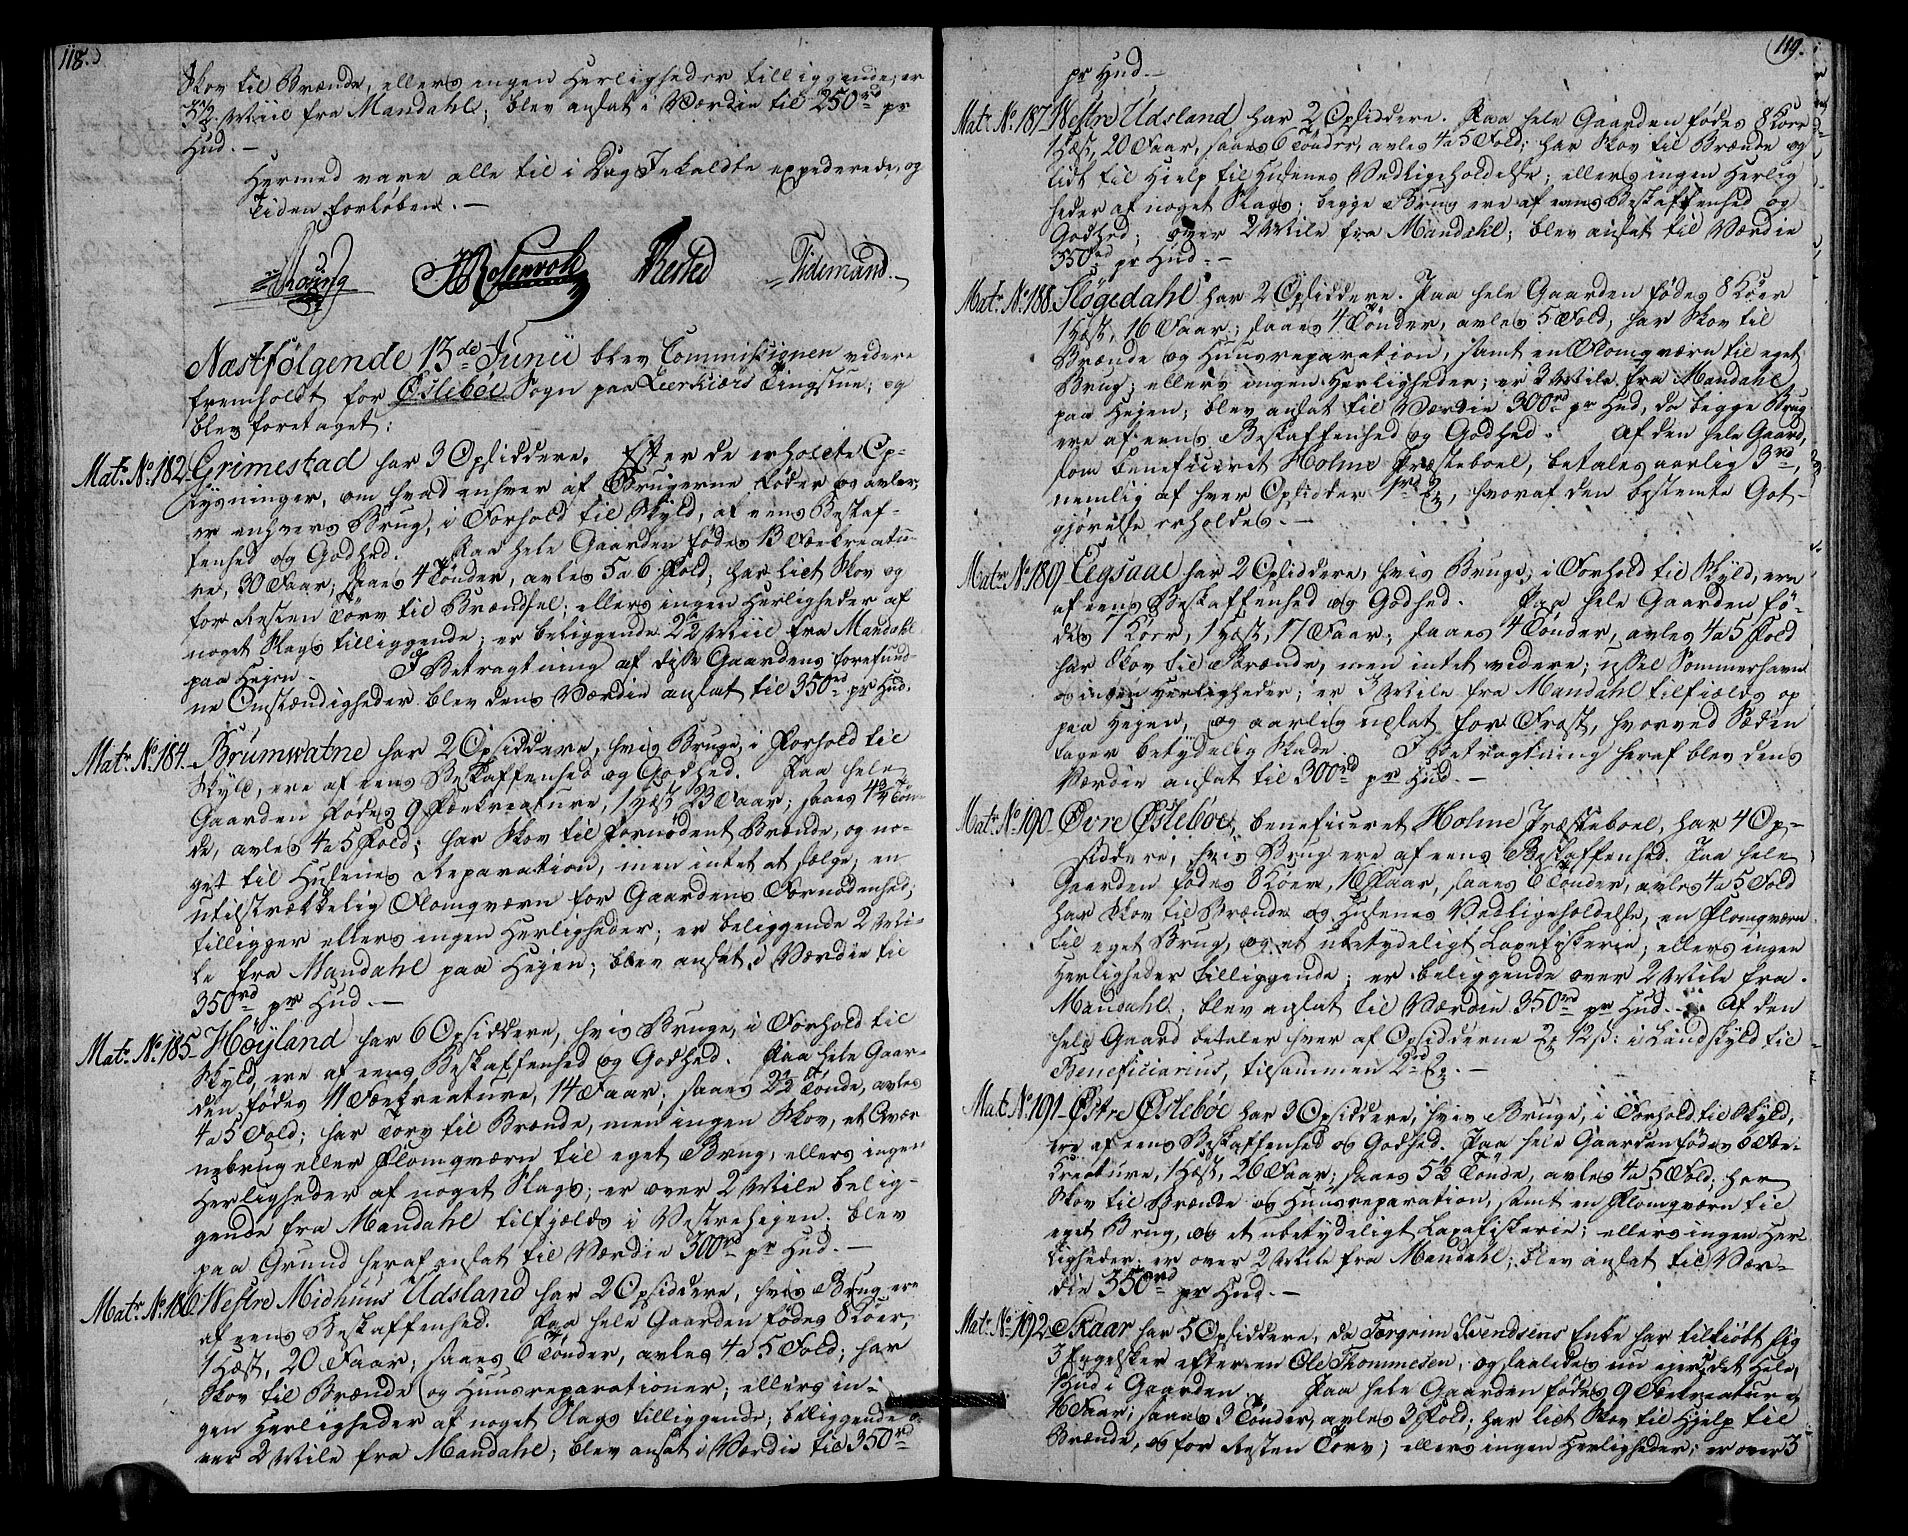 118.
Skov til Brænde, ellers ingen Herligheder tilliggende; er
3½ Miil fra Mandahl; blev ansat i Værdie til 250rd pr
Hud. —
Hermed vare alle til i Dag Jekaldte expederede, og
Tiden forløben. —
Rosenvold Tidemand. —
Næstfølgende 13de Junii blev Commissionen videre
fremholdt for Øslebøe Sogn paa Leerkiærs Tingstue; og
blev foretaget:
Matr. No. 182. Grimestad har 3 Opsiddere. Efter de erholdte Op-
lysninger, om hvad enhver af Brugerne føder og avler,
er enhvers Brug, i Forhold til Skyld, af eens Beskaf-
fenhed og Godhed. Paa hele Gaarden fødes 13 Fækreatu-
re, 30 Faar; saaes 4 Tønder, avles 5 a 6 Fold; har lidt Skov og
for Resten Tørv til Brændsel; ellers ingen Herligheder af
noget Slags tilliggende; er beliggende 2½ Miil fra Mandahl
paa Hejen. I Betragtning af disse Gaardens forefund-
ne Omstændigheder blev dens Værdie ansat til 350rd pr Hud.
Matr. No. 184. Brumwatne har 2 Opsiddere, hvis Bruge, i Forhold til
Skyld, ere af eens Beskaffenhed og Godhed. Paa hele
Gaarden fødes 9 Fækreature, 1 Hæst, 23 Faar; saaes 4¾ Tøn-
de, avles 4 a 5 Fold; har Skov til fornødent Brænde, og no-
get til Husenes Reparation, men intet at sælge; en
utilstrækkelig Flomqværn for Gaardens Fornødenhed;
tilligger ellers ingen Herligheder; er beliggende 2 Mi-
le fra Mandahl paa Hejen; blev ansat i Værdie til
350rd pr Hud. —
Matr. No. 185. Høyland har 6 Opsiddere, hvis Bruge, i Forhold til
Skyld, ere af eens Beskaffenhed og Godhed. Paa hele Gaar-
den fødes 11 Fækreature, 14 Faar; saaes 2½ Tønde, avles
4 a 5 Fold; har Tørv til Brænde, men ingen Skov, et Qvær
nebrug eller Flomqværn til eget Brug, ellers ingen
Herligheder af noget Slags; er over 2 Mile belig-
gende fra Mandahl tilfjælds i Vestrehejen; blev
paa Grund heraf ansat til Værdie 300rd pr Hud. —
Matr. No. 186. Westre Midhuus Udsland har 2 Opsiddere, hvis Brug ere
af eens Beskaffenhed. Paa hele Gaarden fødes 8 Køer,
1 Hæst, 20 Faar; saaes 6 Tønder, avles 4 a 5 Fold; har
Skov til Brænde og Huusreparationer; ellers in-
gen Herligheder af noget Slags tilliggende; beliggende o-
ver 2 Mile fra Mandahl; blev ansat i Værdie til 350rd
119.
pr Hud. —
Matr. No. 187. Westre Udsland har 2 Opsiddere. Paa hele Gaarden fødes 8 Køer
1 Hæst, 20 Faar, saaes 6 Tønder, avles 4 a 5 Fold; har Skov til Brænde og
lidt til Hielp til Husenes Vedligeholdelse; ellers ingen Herlig
heder af noget Slags; begge Brug ere af eens Beskaffenhed og
Godhed; over 2 Mile fra Mandahl; blev ansat til Værdie
350rd pr Hud. —
Matr. No. 188. Sløgedahl har 2 Opsiddere. Paa hele Gaarden fødes 8 Køer
1 Hæst, 16 Faar; saaes 4 Tønder, avles 5 Fold, har Skov til
Brænde og Huusreparation, samt en Flomqværn til eget
Brug; ellers ingen Herligheder; er 3 Mile fra Mandahl
paa Hejen; blev ansat til Værdie 300rd pr Hud, da begge Brug
ere af eens Beskaffenhed og Godhed. Af den hele Gaard,
som beneficeret Holme Præsteboel, betales aarlig 3rd,
nemlig af hver Opsidder 1rd 2, hvoraf den bestemte Got-
gjørelse erholdes. —
Matr. No. 189. Eegsaae har 2 Opsiddere, hvis Bruge, i Forhold til Skyld, ere
af eens Beskaffenhed og Godhed. Paa hele Gaarden fø-
des 7 Køer, 1 Hæst, 17 Faar; saaes 4 Tønder, avles 4 a 5 Fold
har Skov til Brænde, men intet videre; ussel Sommerhavn
og ingen Herligheder; er 3 Mile fra Mandahl tilfiælds op
paa Hejen, og aarlig udsat for Frost, hvorved Sæden
tager betydelig Skade. I Betragtning heraf blev dens
Værdie ansat til 300rd pr Hud. —
Matr. No. 190. Øvre Øslebøe, beneficeret Holme Præsteboel, har 4 Op-
siddere, hvis Brug ere af eens Beskaffenhed. Paa hele
Gaarden fødes 8 Køer, 16 Faar, saaes 6 Tønder, avles 4 a 5 Fold
har Skov til Brænde og Husenes Vedligeholdelse, en Flomqværn
til eget Brug, og et ubetydeligt Laxefiskerie; ellers ingen
Herligheder tilliggende; er beliggende over 2 Mile fra
Mandahl; blev ansat til Værdie 350rd pr Hud. — Af den
hele Gaard betaler hver af Opsidderne 2 12ß: i Landskyld til
Beneficiarius, tilsammen 2rd 2. —
Matr. No. 191. Østre Øslebøe har 3 Opsiddere, hvis Bruge, i Forhold til Skyld,
ere af eens Beskaffenhed og Godhed. Paa hele Gaarden fødes 6 Fæe-
kreature, 1 Hæst, 26 Faar; saaes 5½ Tønde, avles 4 a 5 Fold; har
Skov til Brænde og Huusreparation, samt en Flomqværn til
eget Brug, og et ubetydeligt Laxefiskerie; ellers ingen Her-
ligheder; er over 2 Mile fra Mandahl; blev ansat til Vær-
die 350rd pr Hud. —
Matr. No. 192. Skaar har 5 Opsiddere, da Torgrim Svendsens Enke har tilkiøbt sig
3 Engelsker efter en Ole Thommesen, og saaledes nu ejer det hele
Hud i Gaarden. Paa hele Gaarden fødes 9 Fækreature
16 Faar; saaes 3 Tønder, avles 3 Fold; har lidt Skov til Hjelp til
Brænde, og for Resten Tørv; ellers ingen Herligheder; er over 3